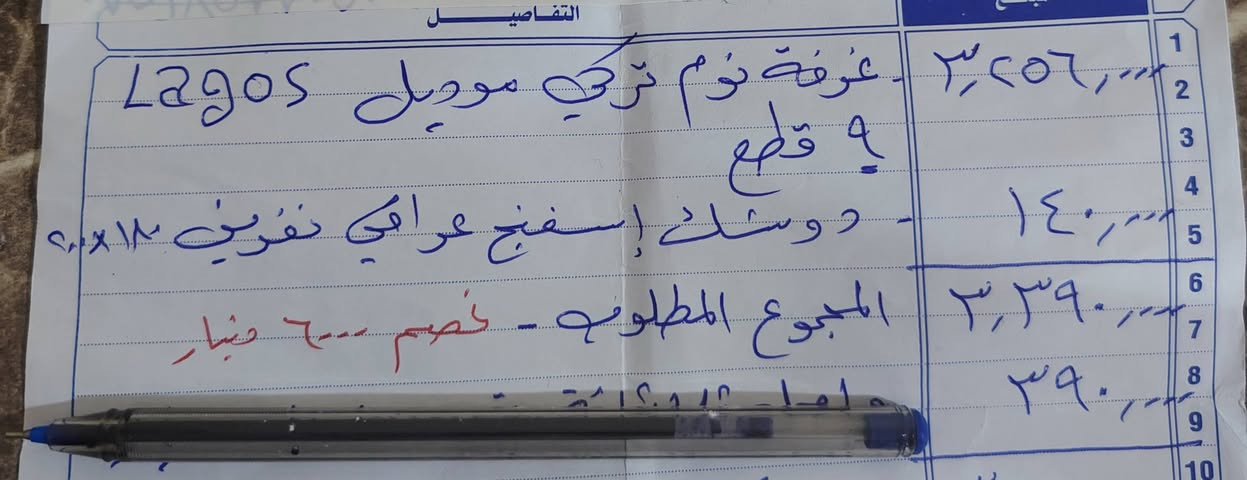 التفاصيل
1
غرفة نوم تركي موديل Lagos ٣,٢٥٦,٠٠٠
2
٩ قطع
3
4
- دوشك إسفنج عراقي نفرين ١٤٠,٠٠٠
5
6
المجموع المطلوب - خصم ٦٠٠٠ دينار ٣,٣٩٠,٠٠٠
7
8
٣٩٠,٠٠٠
9
10